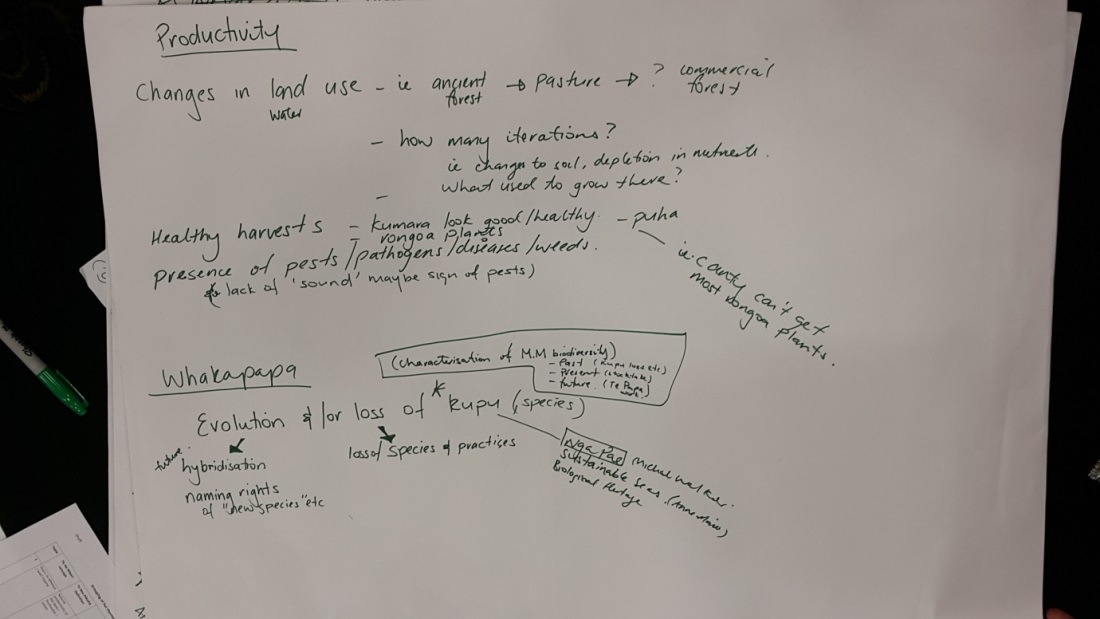 Productivity
Changes in land use - ie ancient forest → pasture → ? commercial forest
water
- how many iterations?
ie changes to soil, depletion in nutrients.
What used to grow there?
-
Healthy harvests - kumara look good/healthy. - puha
- rongoa plants
presence of pests/pathogens/diseases/weeds.
lack of 'sound' maybe sign of pests)
ie. county can't get
most rongoa plants.
(Characterisation of M.M biodiversity)
- Past (kupu loss etc)
- Present (stocktake)
- future. (Te Papa work)
Whakapapa
Evolution &/or loss of * kupu (species)
future hybridisation
loss of species & practices
naming rights
of "new species" etc
Nga Pae Michael Walker.
Sustainable Seas
Biological Heritage